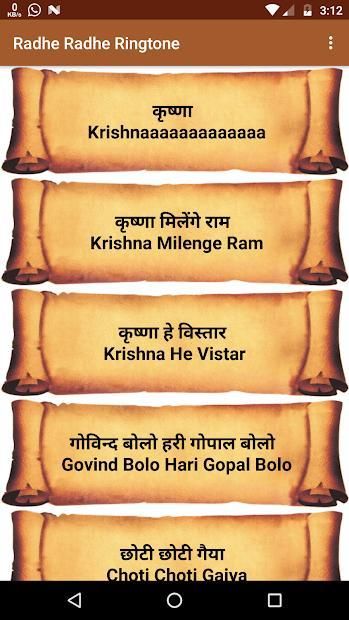 0
KB/s
3:12
Radhe Radhe Ringtone
कृष्णा
Krishnaaaaaaaaaaaaaa
कृष्णा मिलेंगे राम
Krishna Milenge Ram
कृष्णा हे विस्तार
Krishna He Vistar
गोविन्द बोलो हरी गोपाल बोलो
Govind Bolo Hari Gopal Bolo
छोटी छोटी गैया
Choti Choti Gaiya